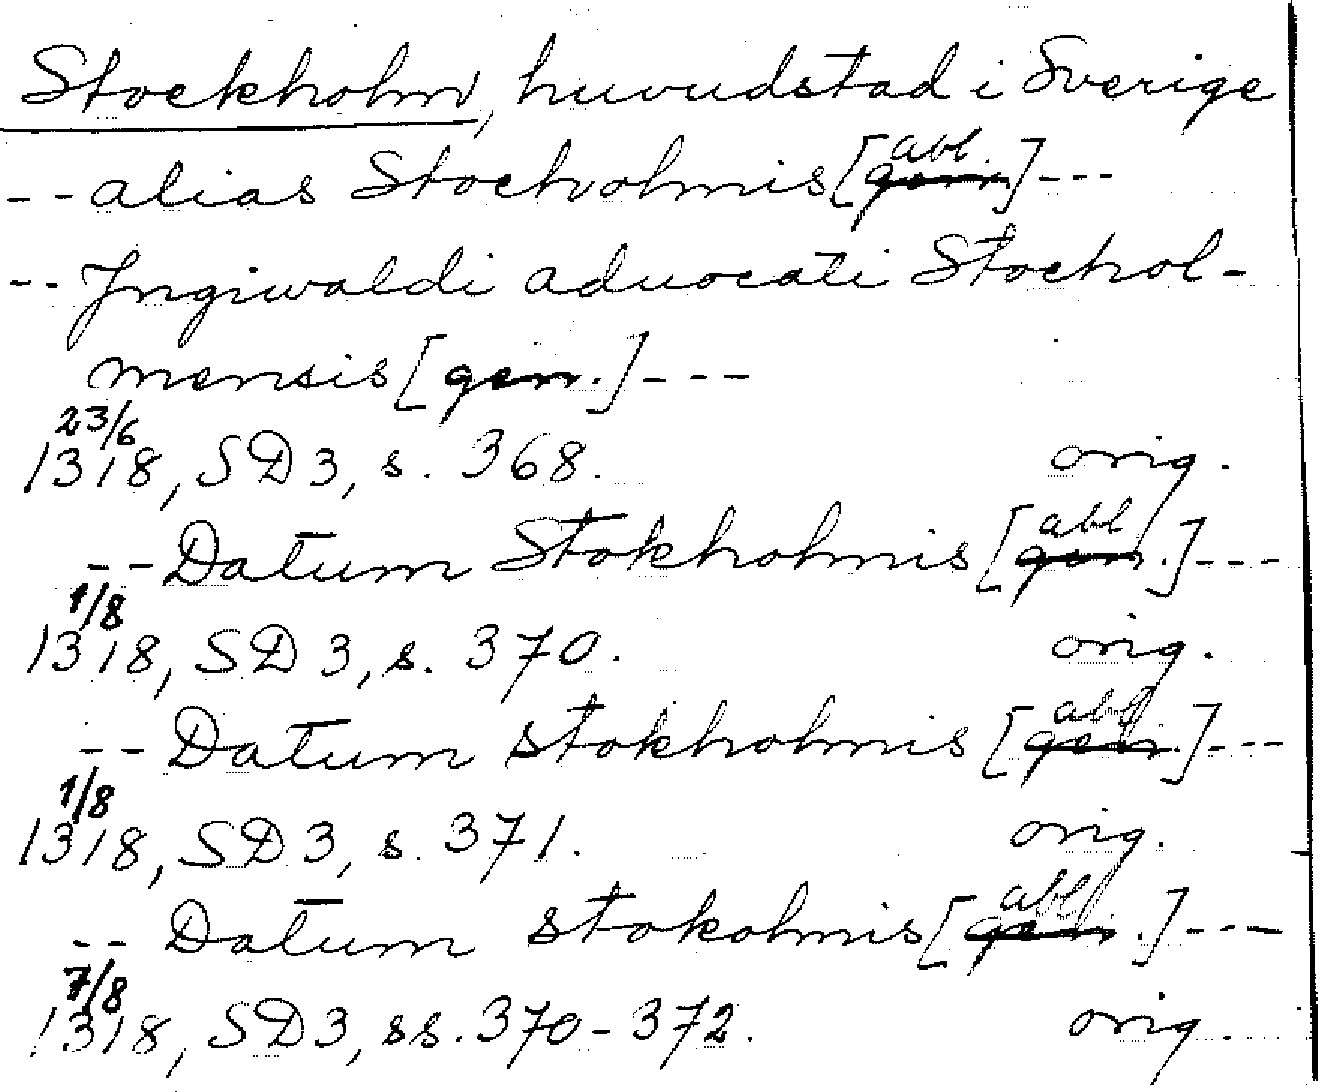 Stockholm, huvudstad i Sverige
-- alias Stocholmis [abl.] ---
-- Jngiwaldi aduocati Stochol-
mensis [gen.] ---
23/6
1318, SD 3, s. 368. orig.
-- Datum Stokholmis [abl.] ---
1/8
1318, SD 3, s. 370. orig.
-- Datum stokholmis [abl.] ---
1/8
1318, SD 3, s. 371. orig.
-- Datum stokolmis [abl.] ---
7/8
1318, SD 3, ss. 370-372. orig.